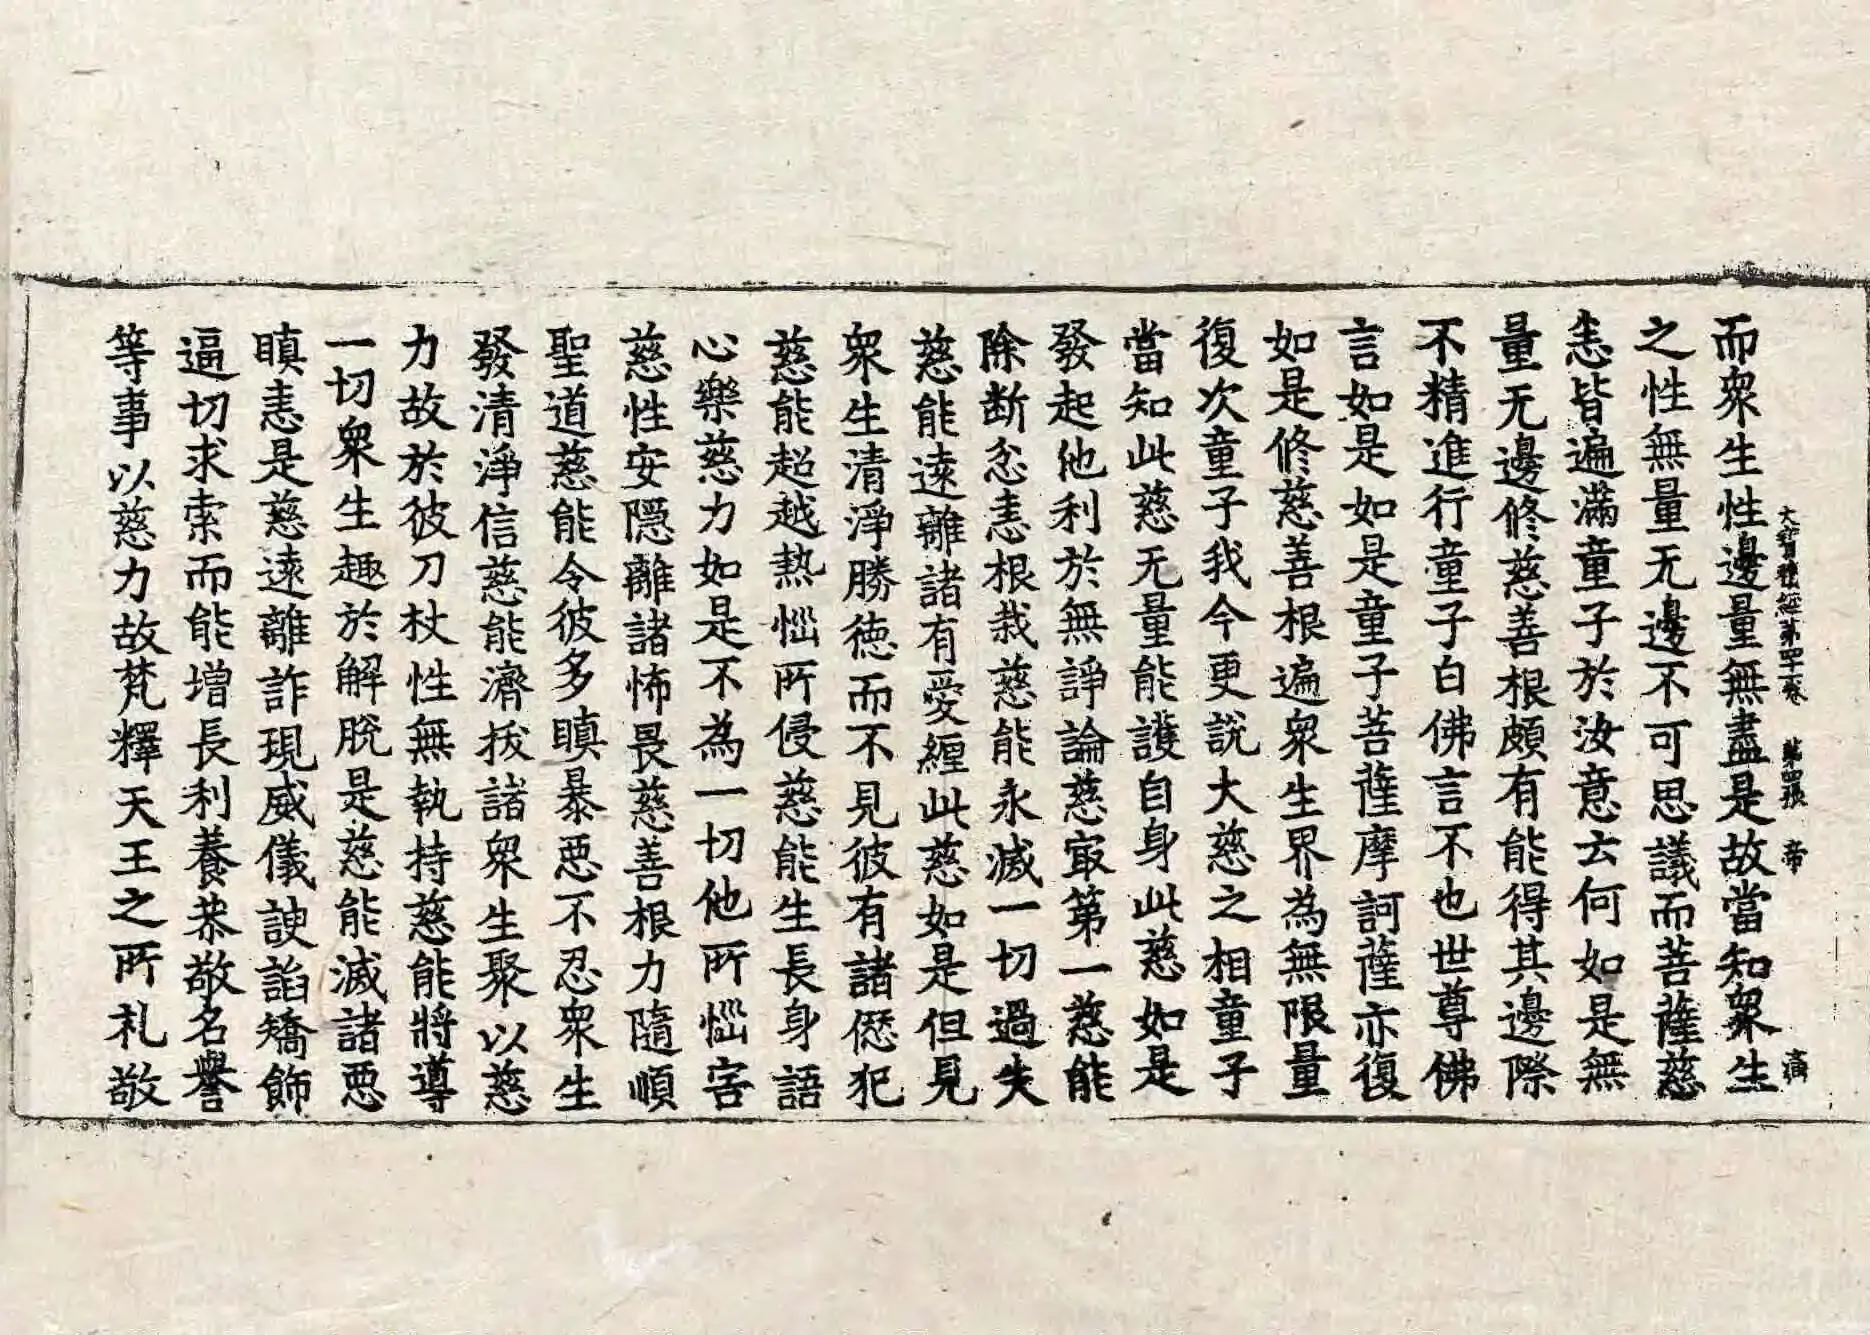 大寶積經第四十一卷 第四張 帝
而衆生性邊量無盡是故當知衆生
之性無量无邊不可思議而菩薩慈
悉皆遍滿童子於汝意云何如是無
量无邊修慈善根頗有能得其邊際
不精進行童子白佛言不也世尊佛
言如是如是童子菩薩摩訶薩亦復
如是修慈善根遍衆生界為無限量
復次童子我今更說大慈之相童子
當知此慈无量能護自身此慈如是
發起他利於無諍論慈㝡第一慈能
除断忿恚根栽慈能永滅一切過失
慈能遠離諸有愛纏此慈如是但見
衆生清淨勝德而不見彼有諸愆犯
慈能超越熱惱所侵慈能生長身語
心樂慈力如是不為一切他所惱害
慈性安隱離諸怖畏慈善根力隨順
聖道慈能令彼多瞋暴惡不忍衆生
發清淨信慈能濟拔諸衆生聚以慈
力故於彼刀杖性無執持慈能將導
一切衆生趣於解脫是慈能滅諸惡
瞋恚是慈遠離詐現威儀諛諂矯飾
逼切求索而能增長利養恭敬名譽
等事以慈力故梵釋天王之所礼敬